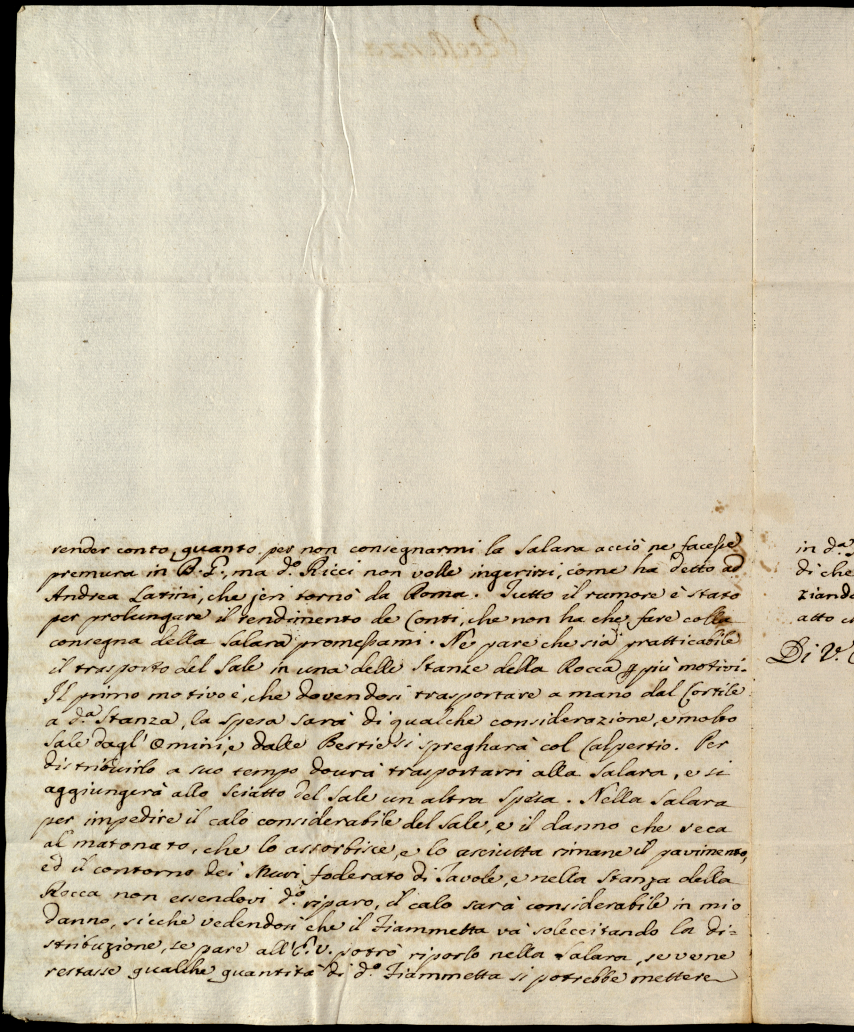 render conto, quanto per non consegnarmi la Salara acciò ne facesse
premura in B. E; ma d.º Ricci non volle ingerirsi, come ha detto ad
Andrea Latini, che jeri tornò da Roma. Tutto il rumore è stato
per prolungare il rendimento de Conti, che non ha che fare colla
consegna della Salara promessami. Nè pare che sia pratticabile
il trasporto del Sale in una delle Stanze della Rocca p più motivi.
Il primo motivo è, che dovendosi trasportare a mano dal Cortile
a d.ª Stanza, la spesa sarà di qualche considerazione, e molto
Sale dagl' Omini, e dalle Bestie si spregharà col Calpestio. Per
distribuirlo a suo tempo dourà trasportarsi alla Salara, e si
aggiungerà allo Sciatto del Sale un altra Spesa. Nella Salara
per impedire il calo considerabile del Sale, e il danno che reca
al matonato, che lo assorbisce, e lo asciutta rimane il pavimento,
ed il contorno dei Muri foderato di Tavole, e nella Stanza della
Rocca non essendovi d.º riparo, il calo sarà considerabile in mio
danno, sicche vedendosi che il Fiammetta và soleccitando la di=
stribuzione, se pare all' E. V. potrò riporlo nella Salara, se ve ne
restasse qualche quantità di d.º Fiammetta si potrebbe mettere
in d.ª
di che
ziando
atto
Di V.
Eccellenza